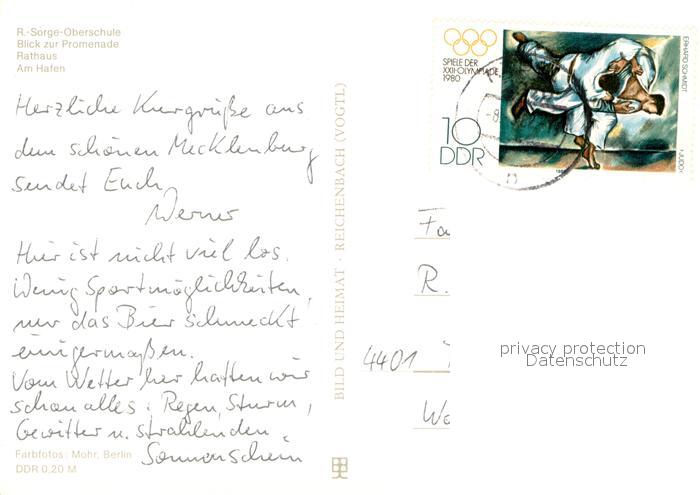 R.-Sorge-Oberschule
Blick zur Promenade
Rathaus
Am Hafen
Herzliche Kurgrüße aus
dem schönen Mecklenburg
sendet Euch
Werner
Hier ist nicht viel los.
Wenig Sportmöglichkeiten,
nur das Bier schmeckt
einigermaßen.
Vom Wetter her hatten wir
schon alles: Regen, Sturm,
Gewitter u. strahlenden
Sonnenschein
Farbfotos: Mohr, Berlin
DDR 0,20 M
BILD UND HEIMAT · REICHENBACH (VOGTL)
SPIELE DER
XXII. OLYMPIADE
1980
10
DDR
ERHARD SCHMIDT
»JUDO«
1980
-8.
Fa
R.
4401
Wo
privacy protection
Datenschutz